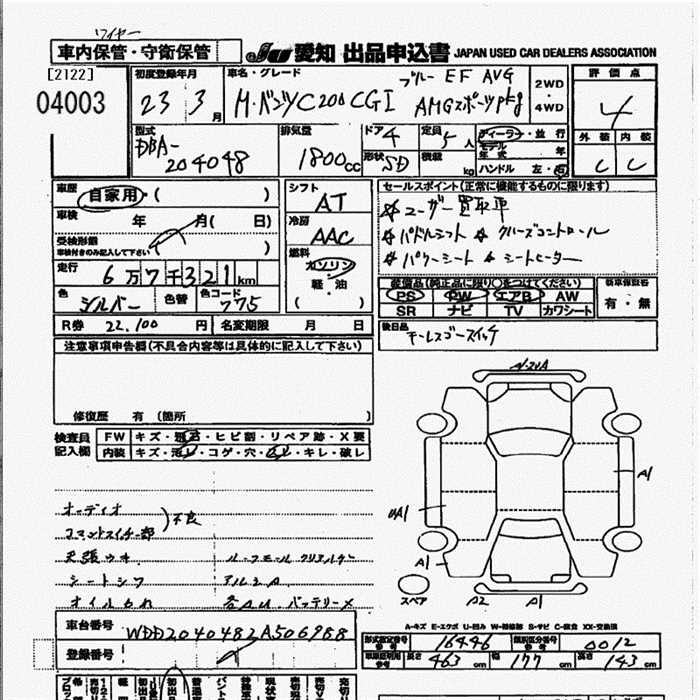 ワイヤー
車内保管・守衛保管
JU 愛知 出品申込書 JAPAN USED CAR DEALERS ASSOCIATION
[2122]
04003
初度登録年月
23 3月
車名・グレード
ブルーEF AVG
M・ベンツC200CGI AMGスポーツpkg
2WD・4WD
評価点
4
外装 内装
C C
型式
DBA-
204048
排気量
1800cc
ドア 4
形状 SD
定員 5人
積載 kg
ディーラー・並行
モデル年式 年
ハンドル 左・右
車歴
自家用・( )
車検 年 月( 日)
受検形態
車検付きのみ記入して下さい ( )
走行 6万7千321km
色 シルバー 色替 色コード 775
R券 22,100円 名変期限 月 日
シフト
AT
冷房
AAC
燃料
ガソリン
軽・油
( )
セールスポイント(正常に機能するものに限ります)
☆ユーザー買取車
☆パドルシフト ☆クルーズコントロール
☆パワーシート ☆シートヒーター
装備品(純正品に限り○をつけてください)
PS PW エアB AW
SR ナビ TV カワシート
新車保証書
有・無
後日品
注意事項申告欄(不具合内容等は具体的に記入して下さい)
修復歴 有 (箇所 )
検査員記入欄
FW キズ・飛石・ヒビ割・リペア跡・X要
内装 キズ・汚レ・コゲ・穴・キレ・破レ
オーディオ
コマンドスイッチ一部
)不良
天張ウキ
ルーフモールクリアハゲ
シートシワ
アルミA
オイルもれ
各AU. バッテリーX
A1
UA1
A1
スペア
A2 A1
A-キズ E-エクボ U-凹み W-補修跡 S-サビ C-腐食 XX-交換済
車台番号
WDD2040482A506988
登録番号
型式指定番号 16446 類別区分番号 0012
長さ 463cm 幅 177cm 高さ 143cm